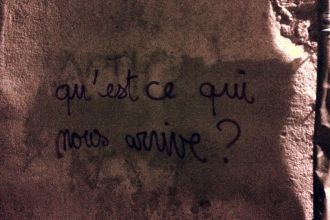 qu'est ce qui
nous arrive ?